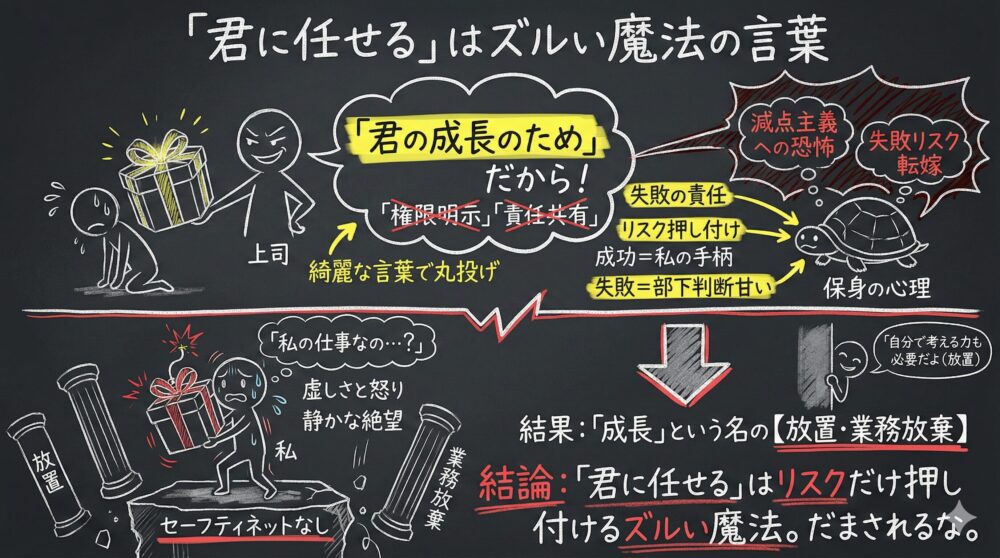 「君に任せる」はズルい魔法の言葉
「君の成長のため」
だから!
「権限明示」「責任共有」
上司
綺麗な言葉で丸投げ
減点主義
への恐怖
失敗リスク
転嫁
失敗の責任
リスク押し付け
成功=私の手柄
失敗=部下判断甘い
保身の心理
「私の仕事なの…?」
虚しさと怒り
静かな絶望
私
放置
業務放棄
セーフティネットなし
「自分で考える力も
必要だよ(放置)
結果:「成長」という名の【放置・業務放棄】
結論:「君に任せる」はリスクだけ押し
付けるズルい魔法。だまされるな。